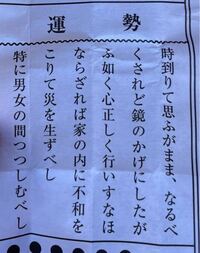 運勢
時到りて思ふがまま、なるべ
くされど鏡のかげにしたが
ふ如く心正しく行いすなほ
ならざれば家の内に不和を
こりて災を生ずべし
特に男女の間つつしむべし